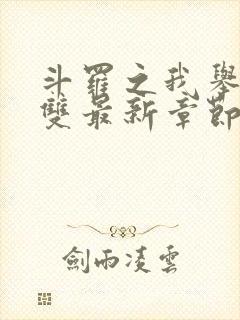 斗羅之我舉
雙最新章節
劍雨凌雲